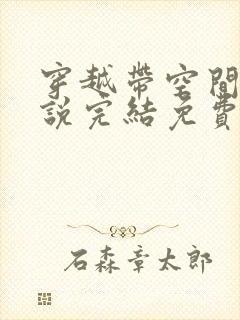 穿越帶空間
說完結免費
石森章太郎